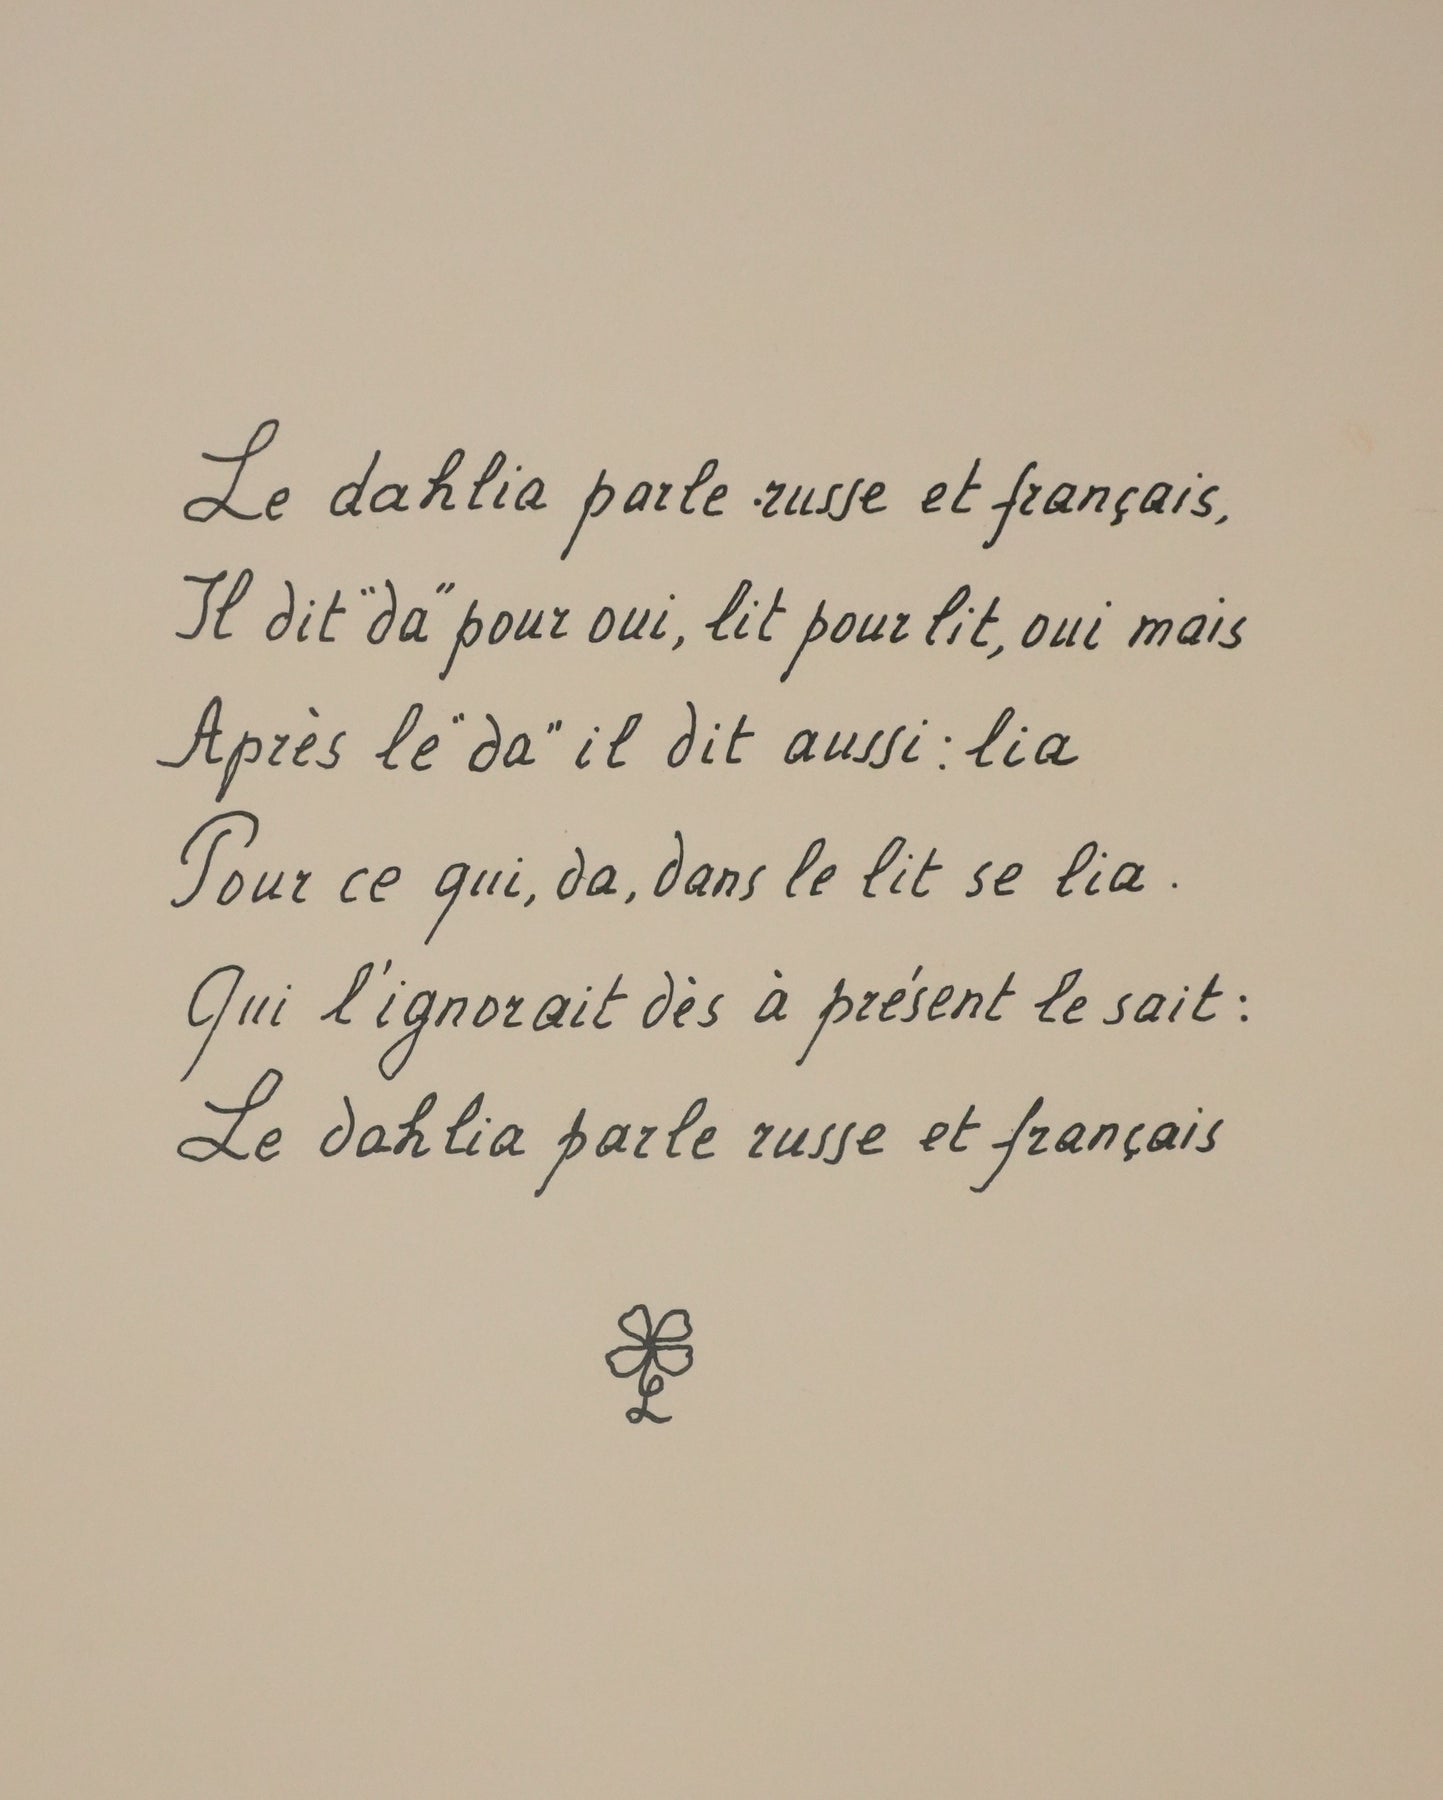 Le dahlia parle russe et français,
Il dit "da" pour oui, lit pour lit, oui mais
Après le "da" il dit aussi : lia
Pour ce qui, da, dans le lit se lia.
Qui l'ignorait dès à présent le sait :
Le dahlia parle russe et français
L